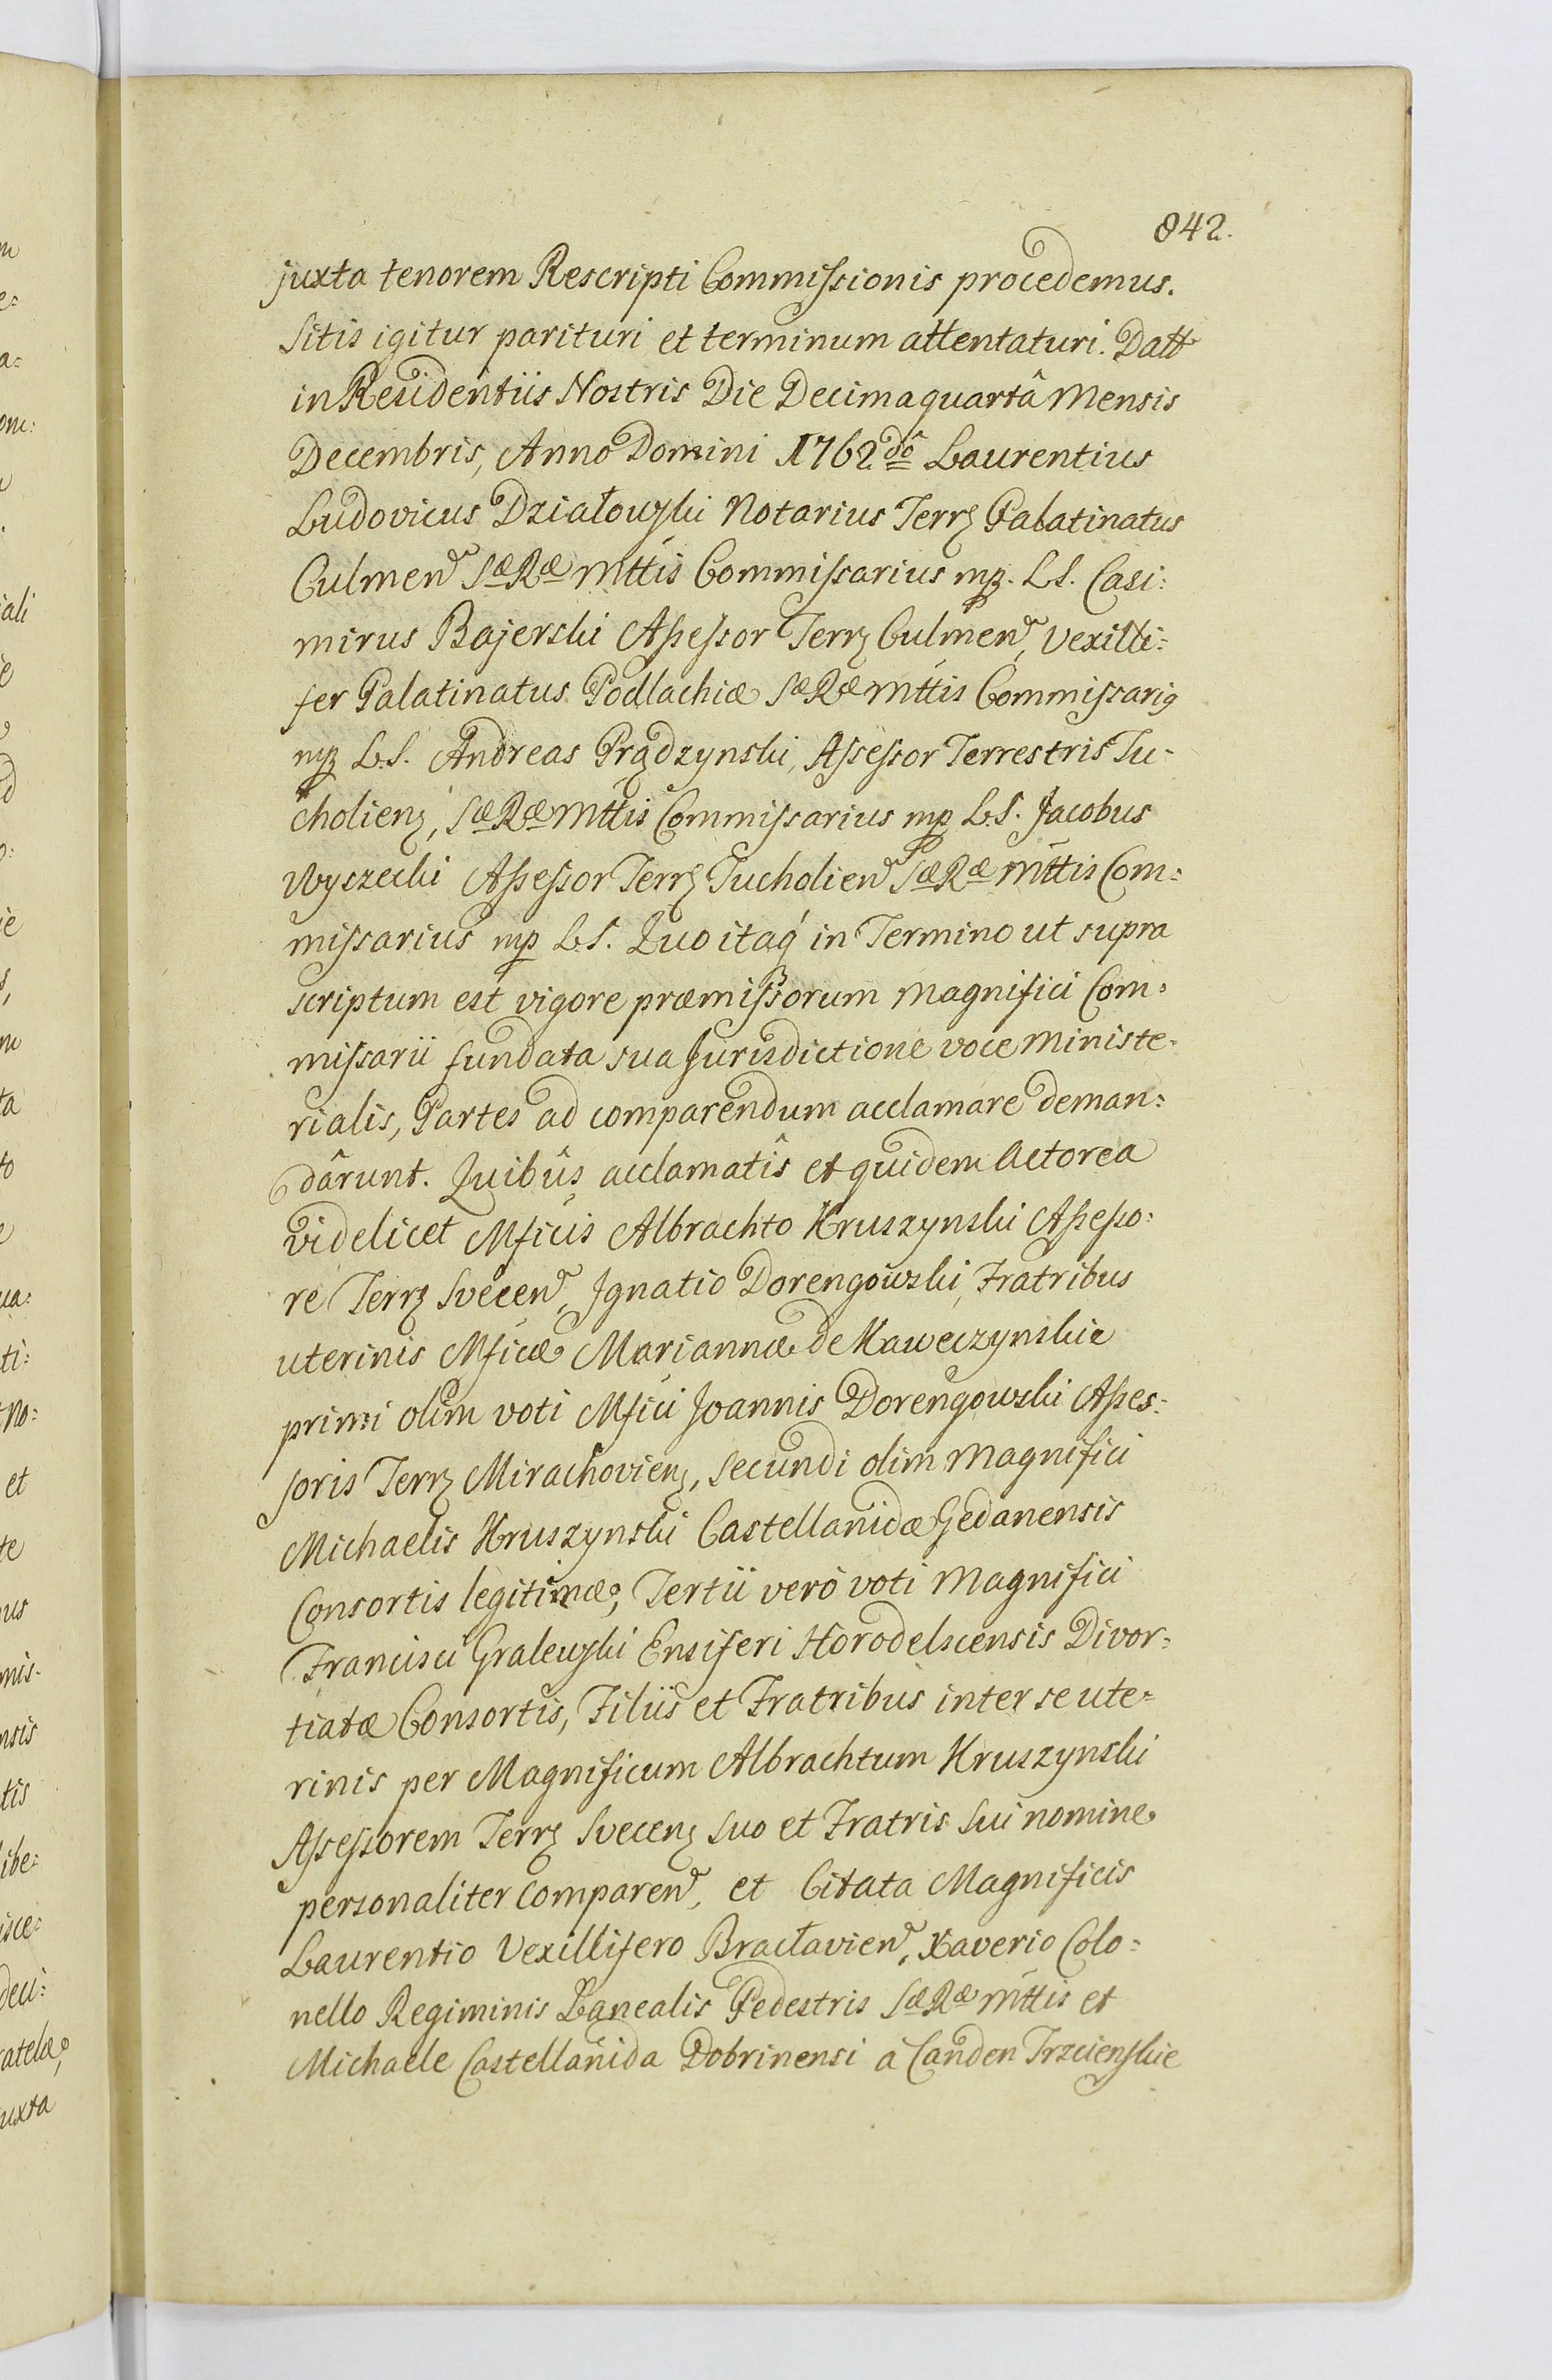 842.
juxta tenorem Rescripti Commissionis procedemus.
Sitis igitur parituri et terminum attentaturi. Datt
in Residentiis Nostris Die Decima quartâ Mensis
Decembris, Anno Domini 1762dô Laurentius
Ludovicus Działowski Notarius Terrȝ Palatinatus
Culmen SæRæ Mttis Commissarius mp. LS. Casi:
mirus Bajerski Assessor Terrȝ Culmen, Vexilli:
fer Palatinatus Podlachiæ SæRæ Mttis Commissari9
mp L.S. Andreas Prądzynski, Assessor Terrestris Tu-
cholienȝ, SæRæ Mttis Commissarius mp L.S. Jacobus
Wyczecki Assessor Terrȝ Tucholien SæRæ Mttis Com:
missarius mp L.S. Quo itaq́ in Termino ut supra
scriptum est vigore præmissorum Magnifici Com:
missarii fundata sua Jurisdictione voce Ministe-
rialis, Partes ad comparendum acclamare deman:
dârunt. Quibûs acclamatîs et quidem Actorea
videlicet Mficis Albrachto Kruszynski Assesso:
re Terrȝ Svecen, Ignatio Dorengowski, Fratribus
uterinis Mficæ Mariannæ de Kaweczynskie
primi olim voti Mfici Joannis Dorengowski Asses:
soris Terrȝ Mirachovienȝ, secundi olim Magnifici
Michaelis Kruszynski Castellanidæ Gedanensis
Consortis legitimæ, Tertii verò voti Magnifici
Francisci Gralewski Ensiferi Horodelscensis Divor:
tiatæ Consortis, Filiis et Fratribus inter se ute-
rinis per Magnificum Albrachtum Kruszynski
Assessorem Terrȝ Svecenȝ suo et Fratris sui nomine
personaliter Comparen, et Citata Magnificis
Laurentio Vexillifero Bracłavien, Xaverio Colo:
nello Regiminis Lanealis Pedestris SæRæ Mttis et
Michaele Castellanida Dobrinensi à Canden Trzcienskie